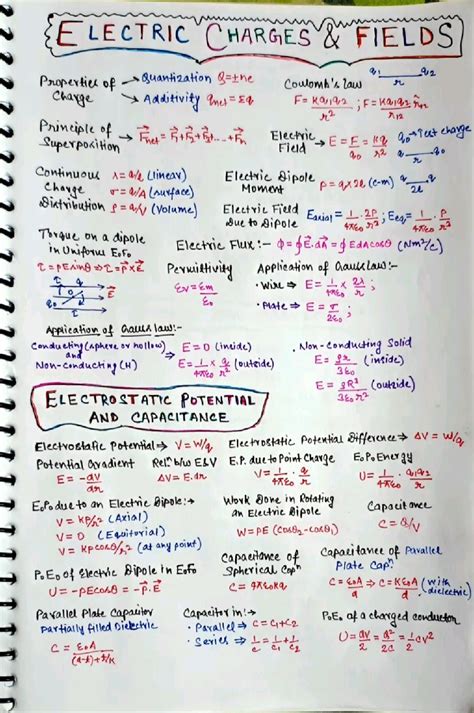 ELECTRIC CHARGES & FIELDS
Properties of Charge → Quantization Q=±ne
→ Additivity qnet = Σq
Coulomb's law q1 q2 r
F = Kq1q2/r² ; F = Kq1q2/r² r̂12
Principle of Superposition → F⃗net = F⃗1+F⃗2+F⃗3+...+F⃗n
Electric Field → E = F/q0 = Kq/r² q0→Test charge
q r q0
Continuous Charge Distribution
λ = q/l (linear)
σ = q/A (surface)
ρ = q/V (volume)
Electric Dipole Moment P = q×2l (c-m) -q 2l q
Electric Field Due to Dipole Eaxial = 1/4πε0 · 2P/r³ ; Eeq = 1/4πε0 · P/r³
Torque on a dipole in Uniform E.F.
τ = PE sinθ ⇒ τ = P⃗×E⃗
Electric Flux:- Φ = ∮E⃗.dA⃗ = ∮EdAcosθ (Nm²/c)
Permittivity
εr = εm/ε0
Application of Gauss law:-
• Wire ⇒ E = 1/4πε0 × 2λ/r ;
• Plate ⇒ E = σ/2ε0 ;
Application of Gauss law:-
Conducting (sphere or hollow) and Non-Conducting (H)
⇒ E = 0 (inside)
E = 1/4πε0 × q/r² (outside)
• Non-Conducting Solid
E = ρr/3ε0 (inside)
E = ρR³/3ε0r² (outside)
ELECTROSTATIC POTENTIAL AND CAPACITANCE
Electrostatic Potential ⇒ V = W/q
Electrostatic Potential Difference ⇒ ΔV = W/q
Potential Gradient
E = -dV/dr
Relⁿ b/w E&V
ΔV = E.dr
E.P. due to Point Charge
V = 1/4πε0 · q/r
E.P. Energy
U = 1/4πε0 · q1q2/r
E.P. due to an Electric Dipole:-
V = KP/r² (Axial)
V = 0 (Equitorial)
V = KPcosθ/r² (at any point)
Work Done in Rotating an Electric Dipole
W = PE (cosθ2-cosθ1)
Capacitance
C = Q/V
P.E. of Electric Dipole in E.F.
U = -PEcosθ = -P⃗.E⃗
Capacitance of Spherical Capⁿ
C = 4πε0Kq
Capacitance of Parallel Plate Capⁿ
C = ε0A/d ⇒ C = Kε0A/d (with dielectric)
Parallel Plate Capacitor
Partially filled Dielectric
C = ε0A/(d-t)+t/K
Capacitor in:→
• Parallel → C = C1+C2
• Series → 1/C = 1/C1 + 1/C2
P.E. of a charged conductor
U = qV/2 = q²/2C = 1/2CV²